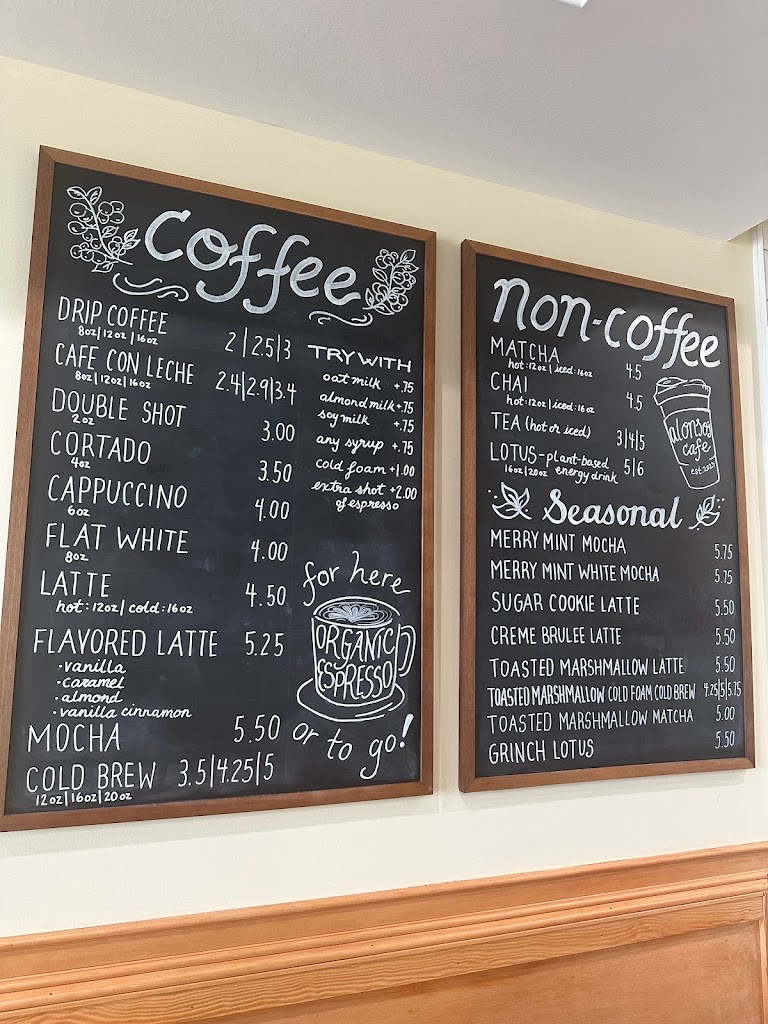 coffee
DRIP COFFEE 2|2.5|3
8oz|12oz|16oz
CAFE CON LECHE 2.4|2.9|3.4
8oz|12oz|16oz
DOUBLE SHOT 3.00
2oz
CORTADO 3.50
4oz
CAPPUCCINO 4.00
6oz
FLAT WHITE 4.00
8oz
LATTE 4.50
hot: 12oz | cold: 16oz
FLAVORED LATTE 5.25
·vanilla
·caramel
·almond
·vanilla cinnamon
MOCHA 5.50
COLD BREW 3.5|4.25|5
12oz|16oz|20oz
TRY WITH
oat milk +.75
almond milk +.75
soy milk +.75
any syrup +.75
cold foam +1.00
extra shot +2.00
of espresso
for here
ORGANIC
ESPRESSO
or to go!
non-coffee
MATCHA 4.5
hot: 12oz | iced: 16oz
CHAI 4.5
hot: 12oz | iced: 16oz
TEA (hot or iced) 3|4|5
LOTUS-plant-based 5|6
16oz|20oz energy drink
alonsos
cafe
est. 2023
Seasonal
MERRY MINT MOCHA 5.75
MERRY MINT WHITE MOCHA 5.75
SUGAR COOKIE LATTE 5.50
CREME BRULEE LATTE 5.50
TOASTED MARSHMALLOW LATTE 5.50
TOASTED MARSHMALLOW COLD FOAM COLD BREW 4.25|5|5.75
TOASTED MARSHMALLOW MATCHA 5.00
GRINCH LOTUS 5.50